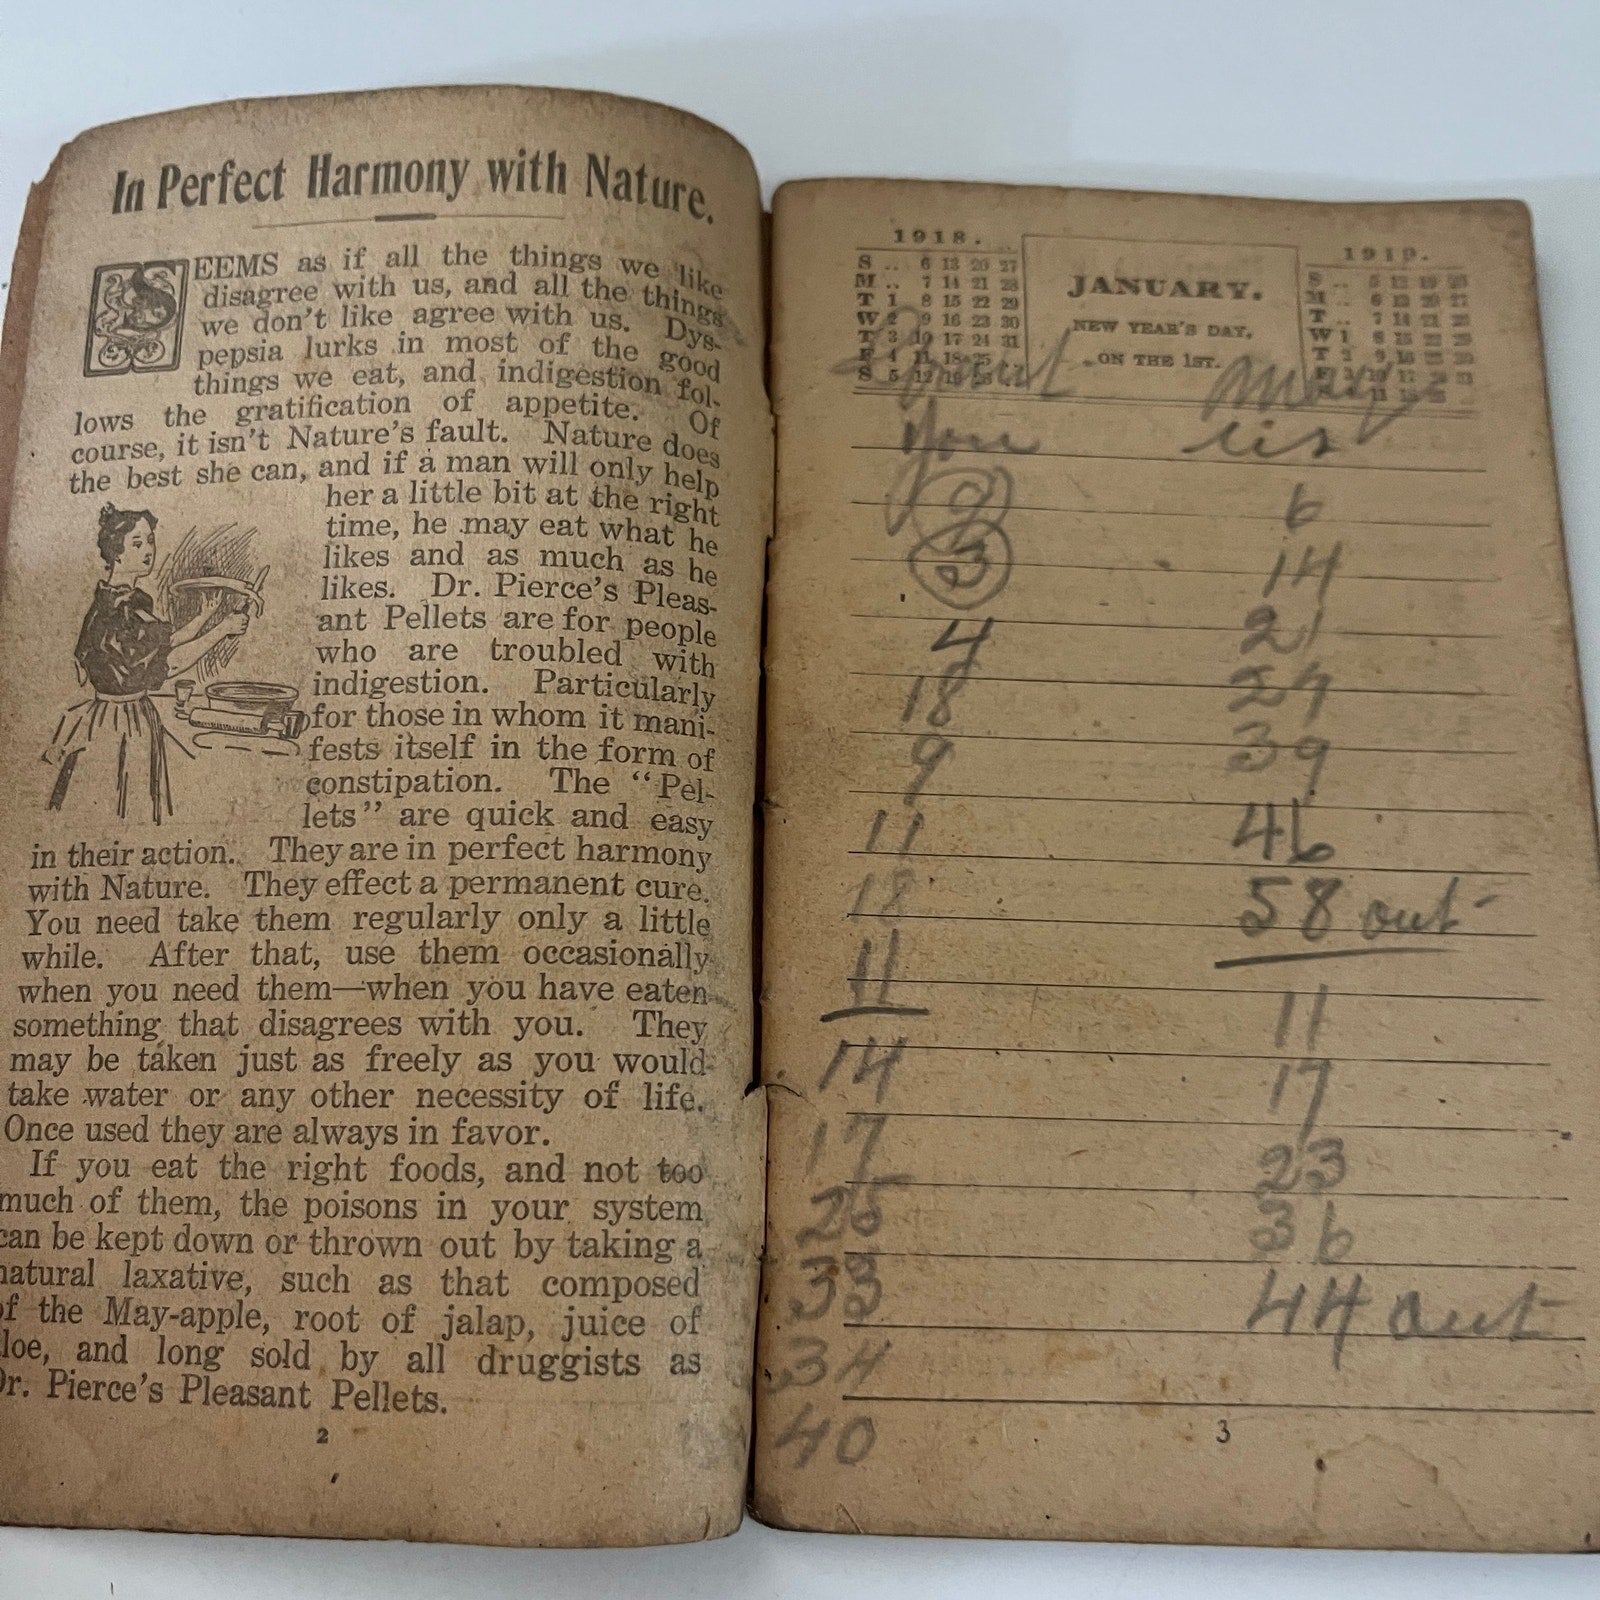 In Perfect Harmony with Nature.
SEEMS as if all the things we like
disagree with us, and all the things
we don't like agree with us. Dys-
pepsia lurks in most of the good
things we eat, and indigestion fol-
lows the gratification of appetite. Of
course, it isn't Nature's fault. Nature does
the best she can, and if a man will only help
her a little bit at the right
time, he may eat what he
likes and as much as he
likes. Dr. Pierce's Pleas-
ant Pellets are for people
who are troubled with
indigestion. Particularly
for those in whom it mani-
fests itself in the form of
constipation. The "Pel-
lets" are quick and easy
in their action. They are in perfect harmony
with Nature. They effect a permanent cure.
You need take them regularly only a little
while. After that, use them occasionally
when you need them—when you have eaten
something that disagrees with you. They
may be taken just as freely as you would
take water or any other necessity of life.
Once used they are always in favor.
If you eat the right foods, and not too
much of them, the poisons in your system
can be kept down or thrown out by taking a
natural laxative, such as that composed
of the May-apple, root of jalap, juice of
aloe, and long sold by all druggists as
Dr. Pierce's Pleasant Pellets.
2
1918.
S .. 6 13 20 27
M .. 7 14 21 28
T 1 8 15 22 29
W 2 9 16 23 30
T 3 10 17 24 31
F 4 11 18 25
S 5 12 19 26
JANUARY.
NEW YEAR'S DAY,
ON THE 1ST.
1919.
S .. 5 12 19 26
M .. 6 13 20 27
T .. 7 14 21 28
W 1 8 15 22 29
T 2 9 16 23 30
F 3 10 17 24 31
S 4 11 18 25
You us
2 6
3 14
4 21
18 24
9 39
11 46
18 58 out
11
14 11
17 17
25 23
33 36
34 44 out
40
3